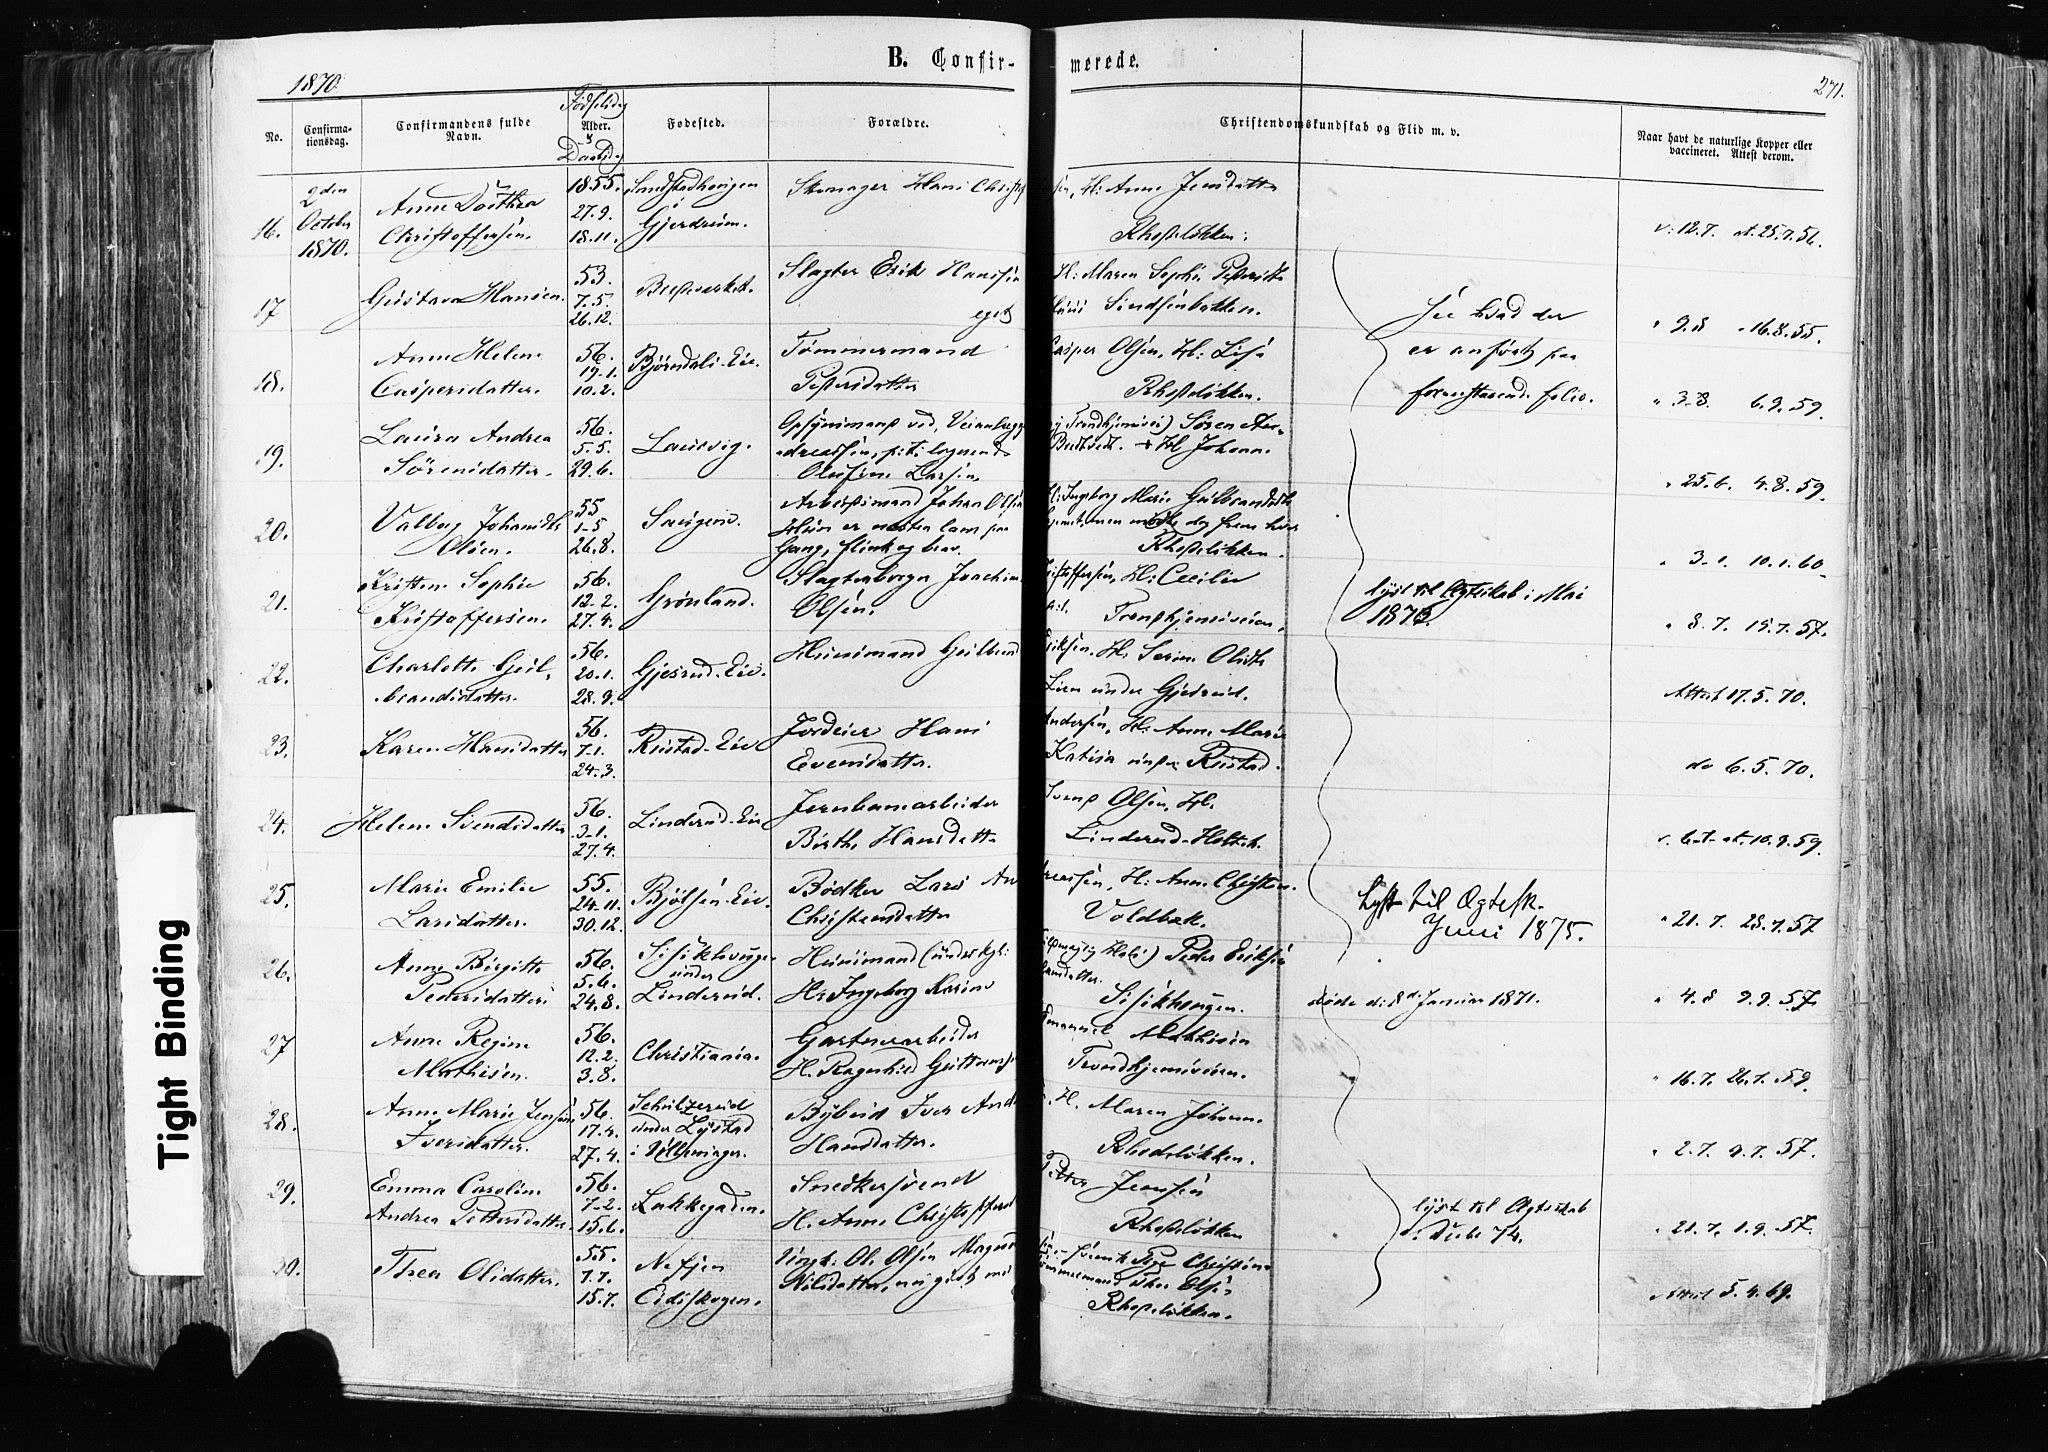 B. Confir- merede.
1870.
271.
Fødselsdag
Daabsdag
No.
Confirma-
tionsdag.
Confirmandens fulde
Navn.
Alder.
Fødested.
Forældre.
Christendomskundskab og Flid m. v.
Naar havt de naturlige Kopper eller
vaccineret. Attest derom.
16.
2den
October
1870.
Anne Dorthea
Christoffersen.
1855.
27.9.
18.11.
i
Gjerdrum.
Skomager Hans Christof
H: Anne Jensdatter
Rhodeløkken.
v: 12.7. at. 25.7.56.
17
Gustava Hansen.
53.
7.5.
26.12.
Slagter Erik Hanssen
H: Maren Sophie
eget
Huus
See hvad der
er anført paa
foranstaaende folio.
" 9.8 " 16.8.55.
18.
Anne Helene
Caspersdatter.
56.
19-1.
10.2.
Bjørndals-Eie.
Tømmermand
Casper Olsen, H: Lise
Pettersdatter
Rhodeløkken.
" 3-8. 6.9.59.
19.
Laura Andrea
Sørensdatter.
56.
5-5.
29.6.
Laurvig.
Trondhjemsvei) Søren An-
dreassen,
H Johanne
Olufine Larsen,
" 25.6. 4.8.59.
20.
Valborg Johansdtr
Olsen.
55
1-5
26.8.
Saugene.
Arbeidsmand Johan Olsen
H: Ingeborg Marie Gulbrandsdtr
Hun er næsten lam paa
Gang, flink og brav.
Rhodeløkken.
" 3-1. 10.1.60.
21.
Kristine Sophie
Kristoffersen.
56.
12-2.
27.4.
Grønland.
Slagterborger Joachim
Kristoffersen, H: Cecilie
Olsen,
Trondhjemsveien,
lyst til Ægteskab i Mai
1873.
" 8.7. 15.7.57.
22.
Charlotte Gul-
brandsdatter.
56.
20.1.
28.9.
Gjesrud-Eie.
Huusmand Gulbrand
Eriksen. H: Serine Olsdtr
Lien under Gjesrud.
Attest 17.5.70.
23.
Karen Hansdatter
56.
7-1.
24.3.
Rustad-Eie
Jordeier Hans
Andersen, H: Anne Marie
Evensdatter.
Katisa under Rustad.
do 6.5.70.
24.
Helene Svendsdatter
56.
3-1.
27.4.
Linderud-Eie
Jernbanearbeider
Svend Olsen, H:
Birthe Hansdatter
Linderud-
at. 10.9.59.
25.
Marie Emilie
Larsdatter.
55.
24-11.
30.12.
Bjølsen-Eie.
Bødker Lars An
dreassen, H: Anne Christen.
Christensdatter
Voldbæk.
Lyst til Ægtesk.
Juni 1875.
" 21.7. 28.7.57
26.
Anne Birgitte
Pedersdatter
56.
5.6.
24.8.
Sisikhougen
under
Linderud.
Huusmand (under
Peder Eriksen
H: Ingeborg Karine
Sisikhougen.
døde d: 8d Januar 1871.
" 4.8 9.9.57.
27
Anne Regine
Mathisen.
56.
12.2.
3.8.
Christiania.
Gartnerarbeider
Emanuel Mathisen
H. Ragnhild Guttormsd
Trondhjemsveien.
" 16.7. 26.7.59.
28.
Anne Marie Jensine
Iversdatter.
56.
17.4.
27.4.
under
i Ullensager.
Bybud Iver And
H. Maren Johanne
Hansdatter.
Rhodeløkken.
" 2.7. 9.7.57.
29.
Emma Caroline
Andrea Pettersdatter
56.
7-2.
15.6.
Lakkegaden.
Snedkersvend
Petter Jensen
H. Anne Christoffersd
Rhodeløkken
lyst til Ægteskab
i Decbr 74.
" 21.7. 1.9.57.
Thea Olsdatter.
55.
7.7.
15.7.
Eidskogen.
Ungk: Ol. Olsen Magnor
Pige Christine
Nilsdatter, nu gift med
Tømmermand
Rhodeløkken.
Attest 5.4.69.
Tight Binding